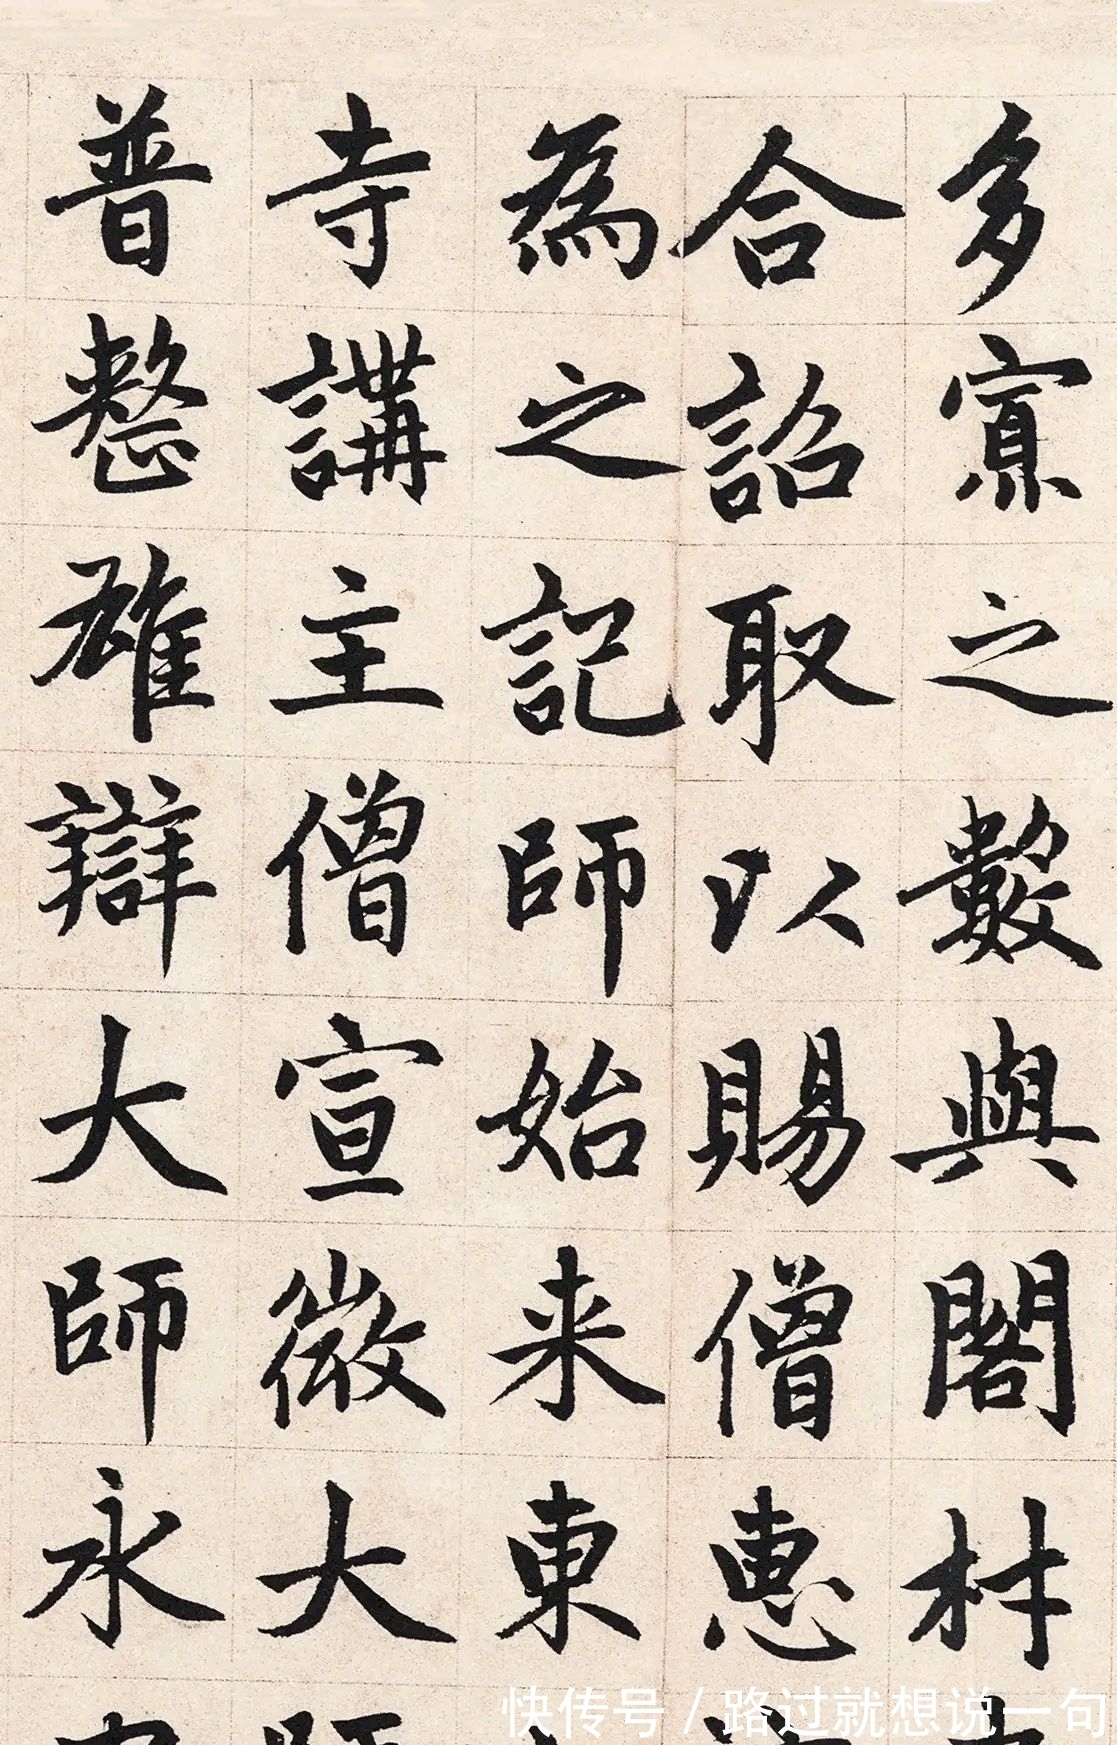 多寡之數與閣材
合詔取以賜僧惠
為之記師始来東
寺講主僧宣微大
普整雄辯大師永
快传号 / 路过就想说一句